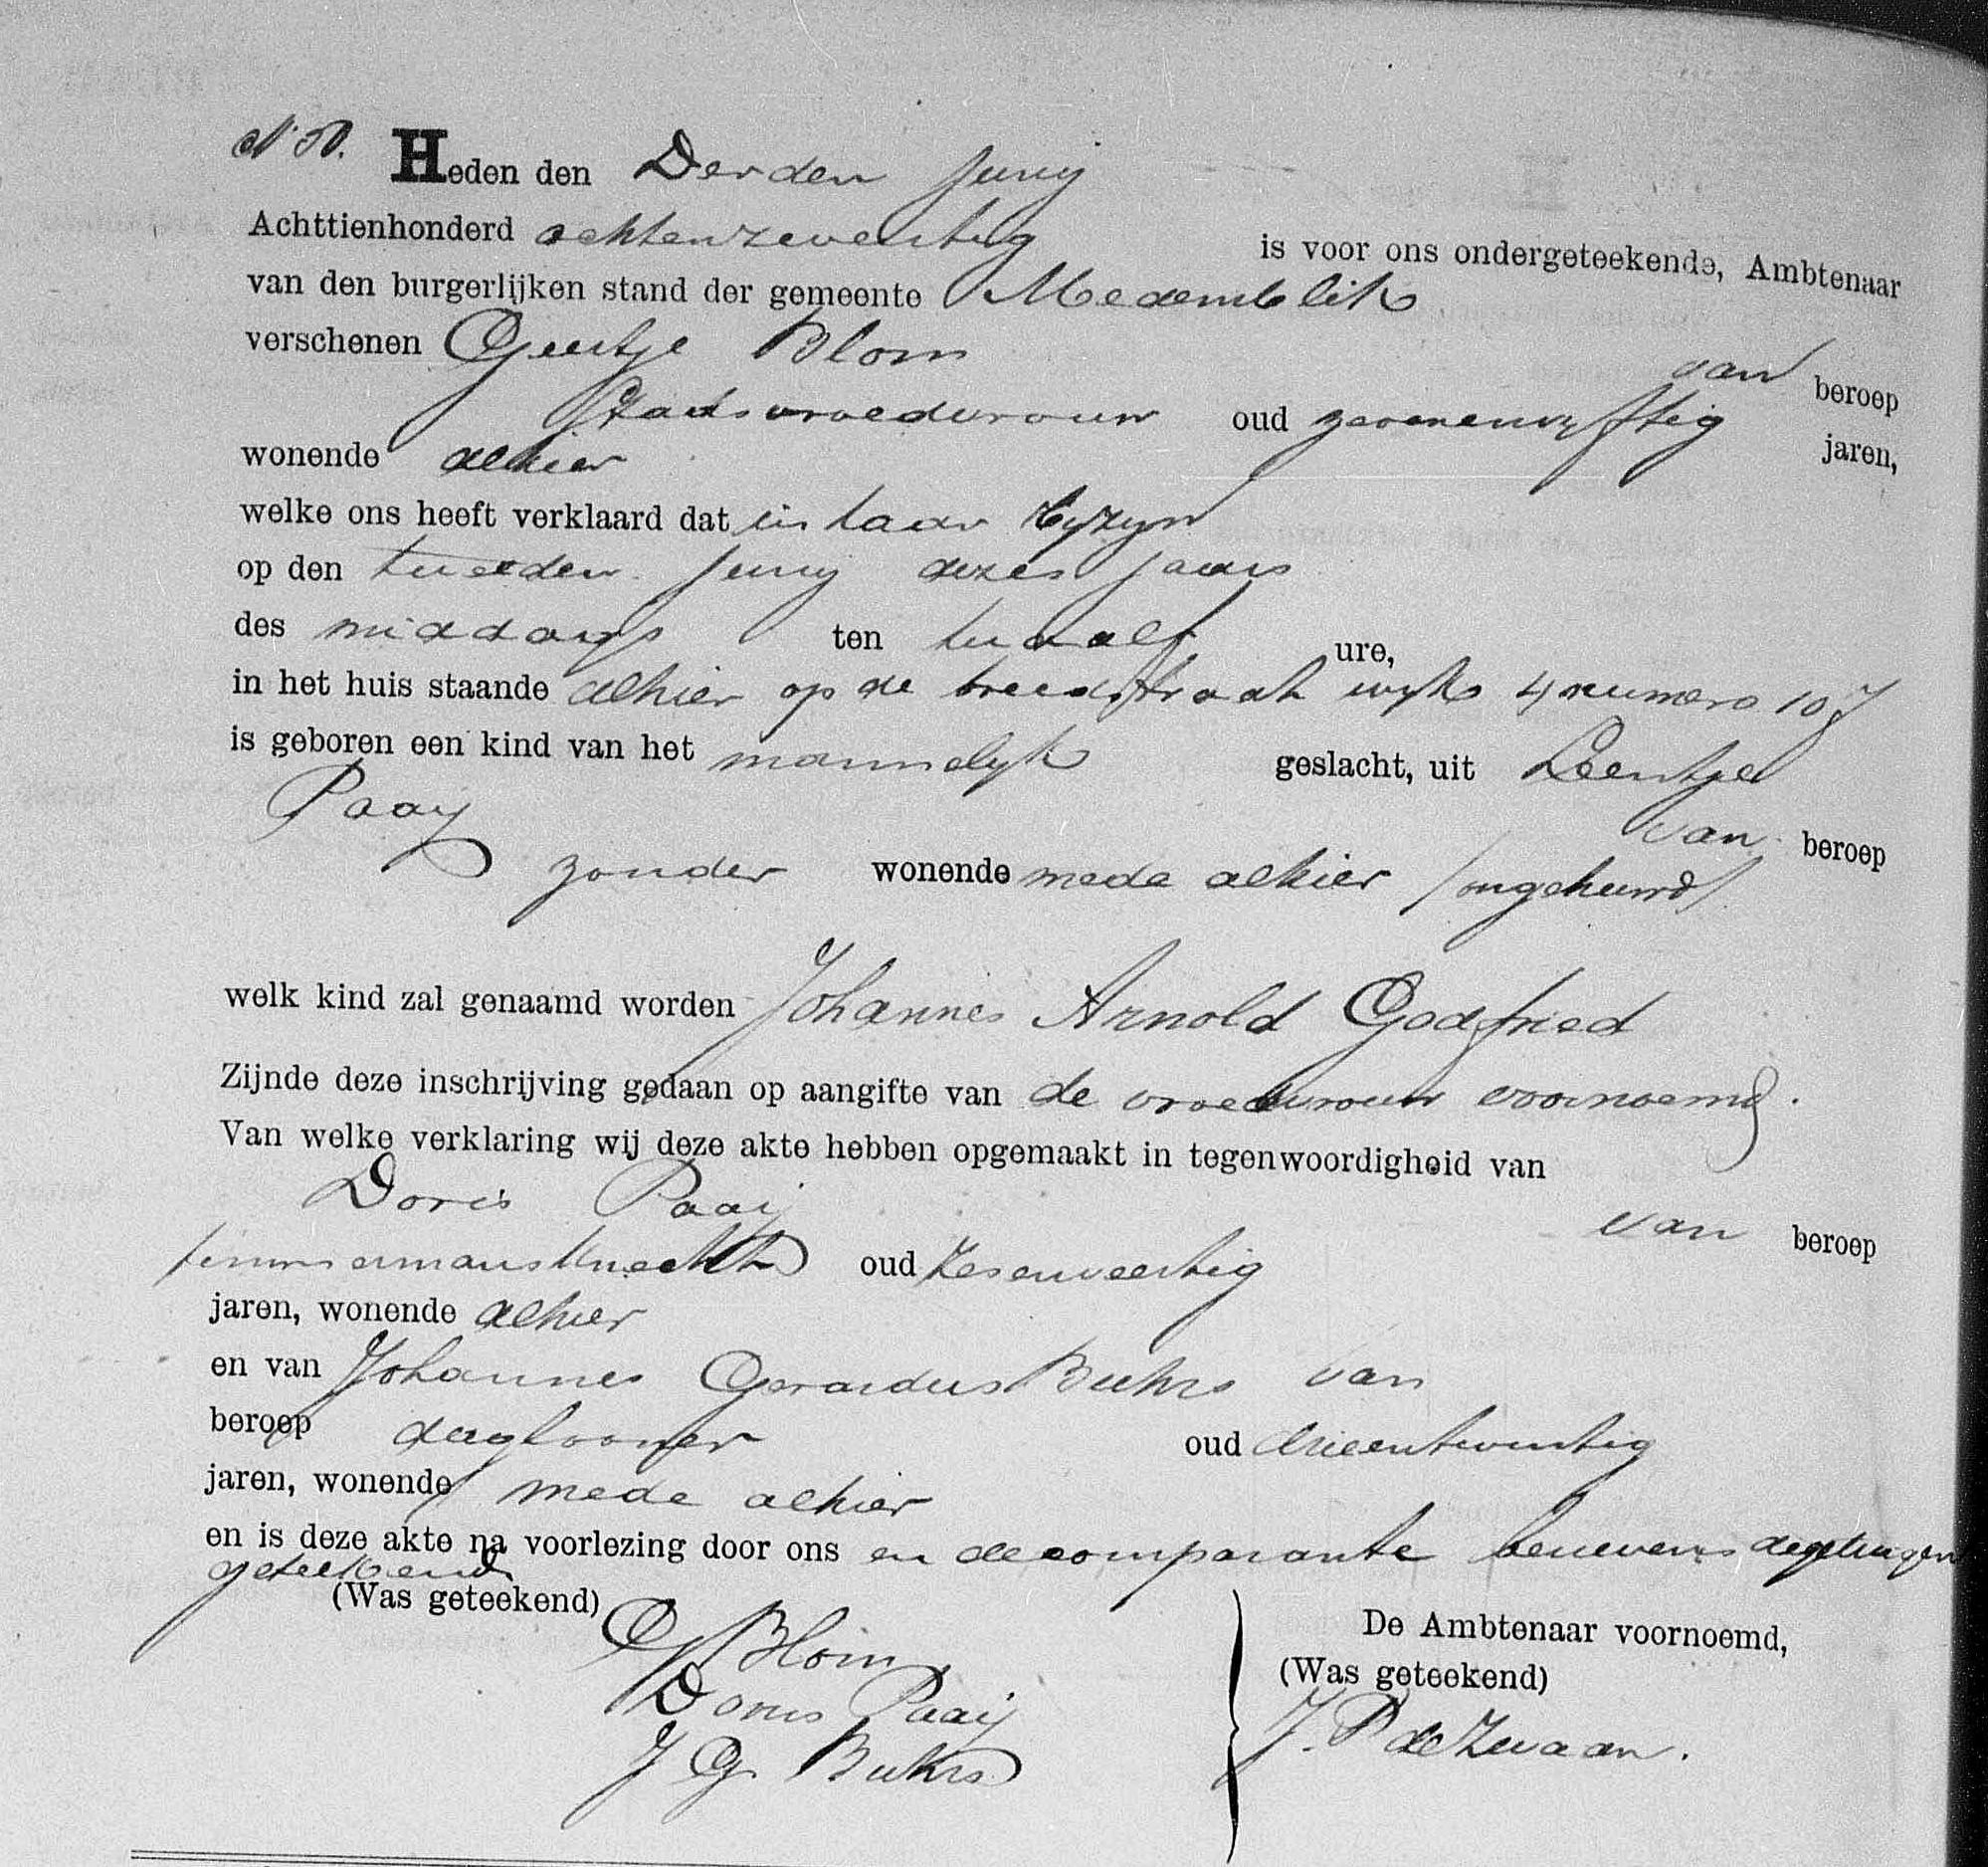 N 50. Heden den Derden Junij
Achttienhonderd achtenzeventig is voor ons ondergeteekende, Ambtenaar
van den burgerlijken stand der gemeente Medemblik
verschenen Geertje Blom van beroep
Stadsvroedvrouw oud zevenenvyftig jaren,
wonende alhier
welke ons heeft verklaard dat in haar byzyn
op den tweeden Junij dezes jaars
des middags ten twaalf ure,
in het huis staande alhier op de breedstraat wyk 4 numero 107
is geboren een kind van het mannelyk geslacht, uit Leentje
Paaij van beroep
zonder wonende mede alhier /ongehuwd/
welk kind zal genaamd worden Johannes Arnold Godfried
Zijnde deze inschrijving gedaan op aangifte van de vroedvrouw voornoemd.
Van welke verklaring wij deze akte hebben opgemaakt in tegenwoordigheid van
Doris Paaij van beroep
timmermansknecht oud zesenveertig
jaren, wonende alhier
en van Johannes Gerardus Buhrs van
beroep daglooner oud drieentwintig
jaren, wonende mede alhier
en is deze akte na voorlezing door ons en de comparante benevens de getuigen
geteekend
(Was geteekend) G Blom
Dorus Paaij
J G Buhrs
De Ambtenaar voornoemd,
(Was geteekend)
J. P de Zwaan.